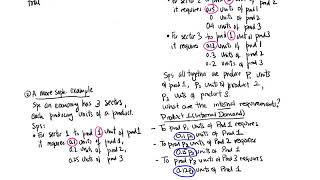 total
② A more Soph. example
Sps an economy has 3 sectors,
each producing units of a product.
Sps:
• For sector 1 to prod 1 unit of prod 1
it requires 0.1 units of Prod 1
0.2 units of prod 2
0.25 units of prod 3
• For sector 2 to prod 1 unit of prod 2
it requires 0.15 units of prod 1
0 units of prod 2
0.4 units of prod 3
• For sector 3 to prod 1 unit of prod 3
it requires 0.12 units of prod 1
0.3 units of prod 2
0.2 units of prod 3
Sps all tgthr we produce P₁ units
of prod 1, P₂ units of product 2,
P₃ units of product 3.
What are the internal requirements?
Product 1 (Internal Demand)
- To prod P₁ units of Prod 1 requires
0.1P₁ units of Prod 1
- To prod P₂ units of Prod 2 requires
units of Prod 1
- To prod P₃ units of Prod 3 requires
units of Prod 1